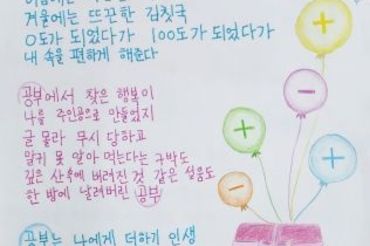 겨울에는 뜨끈한 김칫국
0도가 되었다가 100도가 되었다가
내 속을 편하게 해준다
공부에서 찾은 행복이
나를 주인공으로 만들었지
글 몰라 무시 당하고
말귀 못 알아 먹는다는 구박도
깊은 산속에 버려진 것 같은 설움도
한 방에 날려버린 공부
공부는 나에게 더하기 인생
+
-
+
+
-